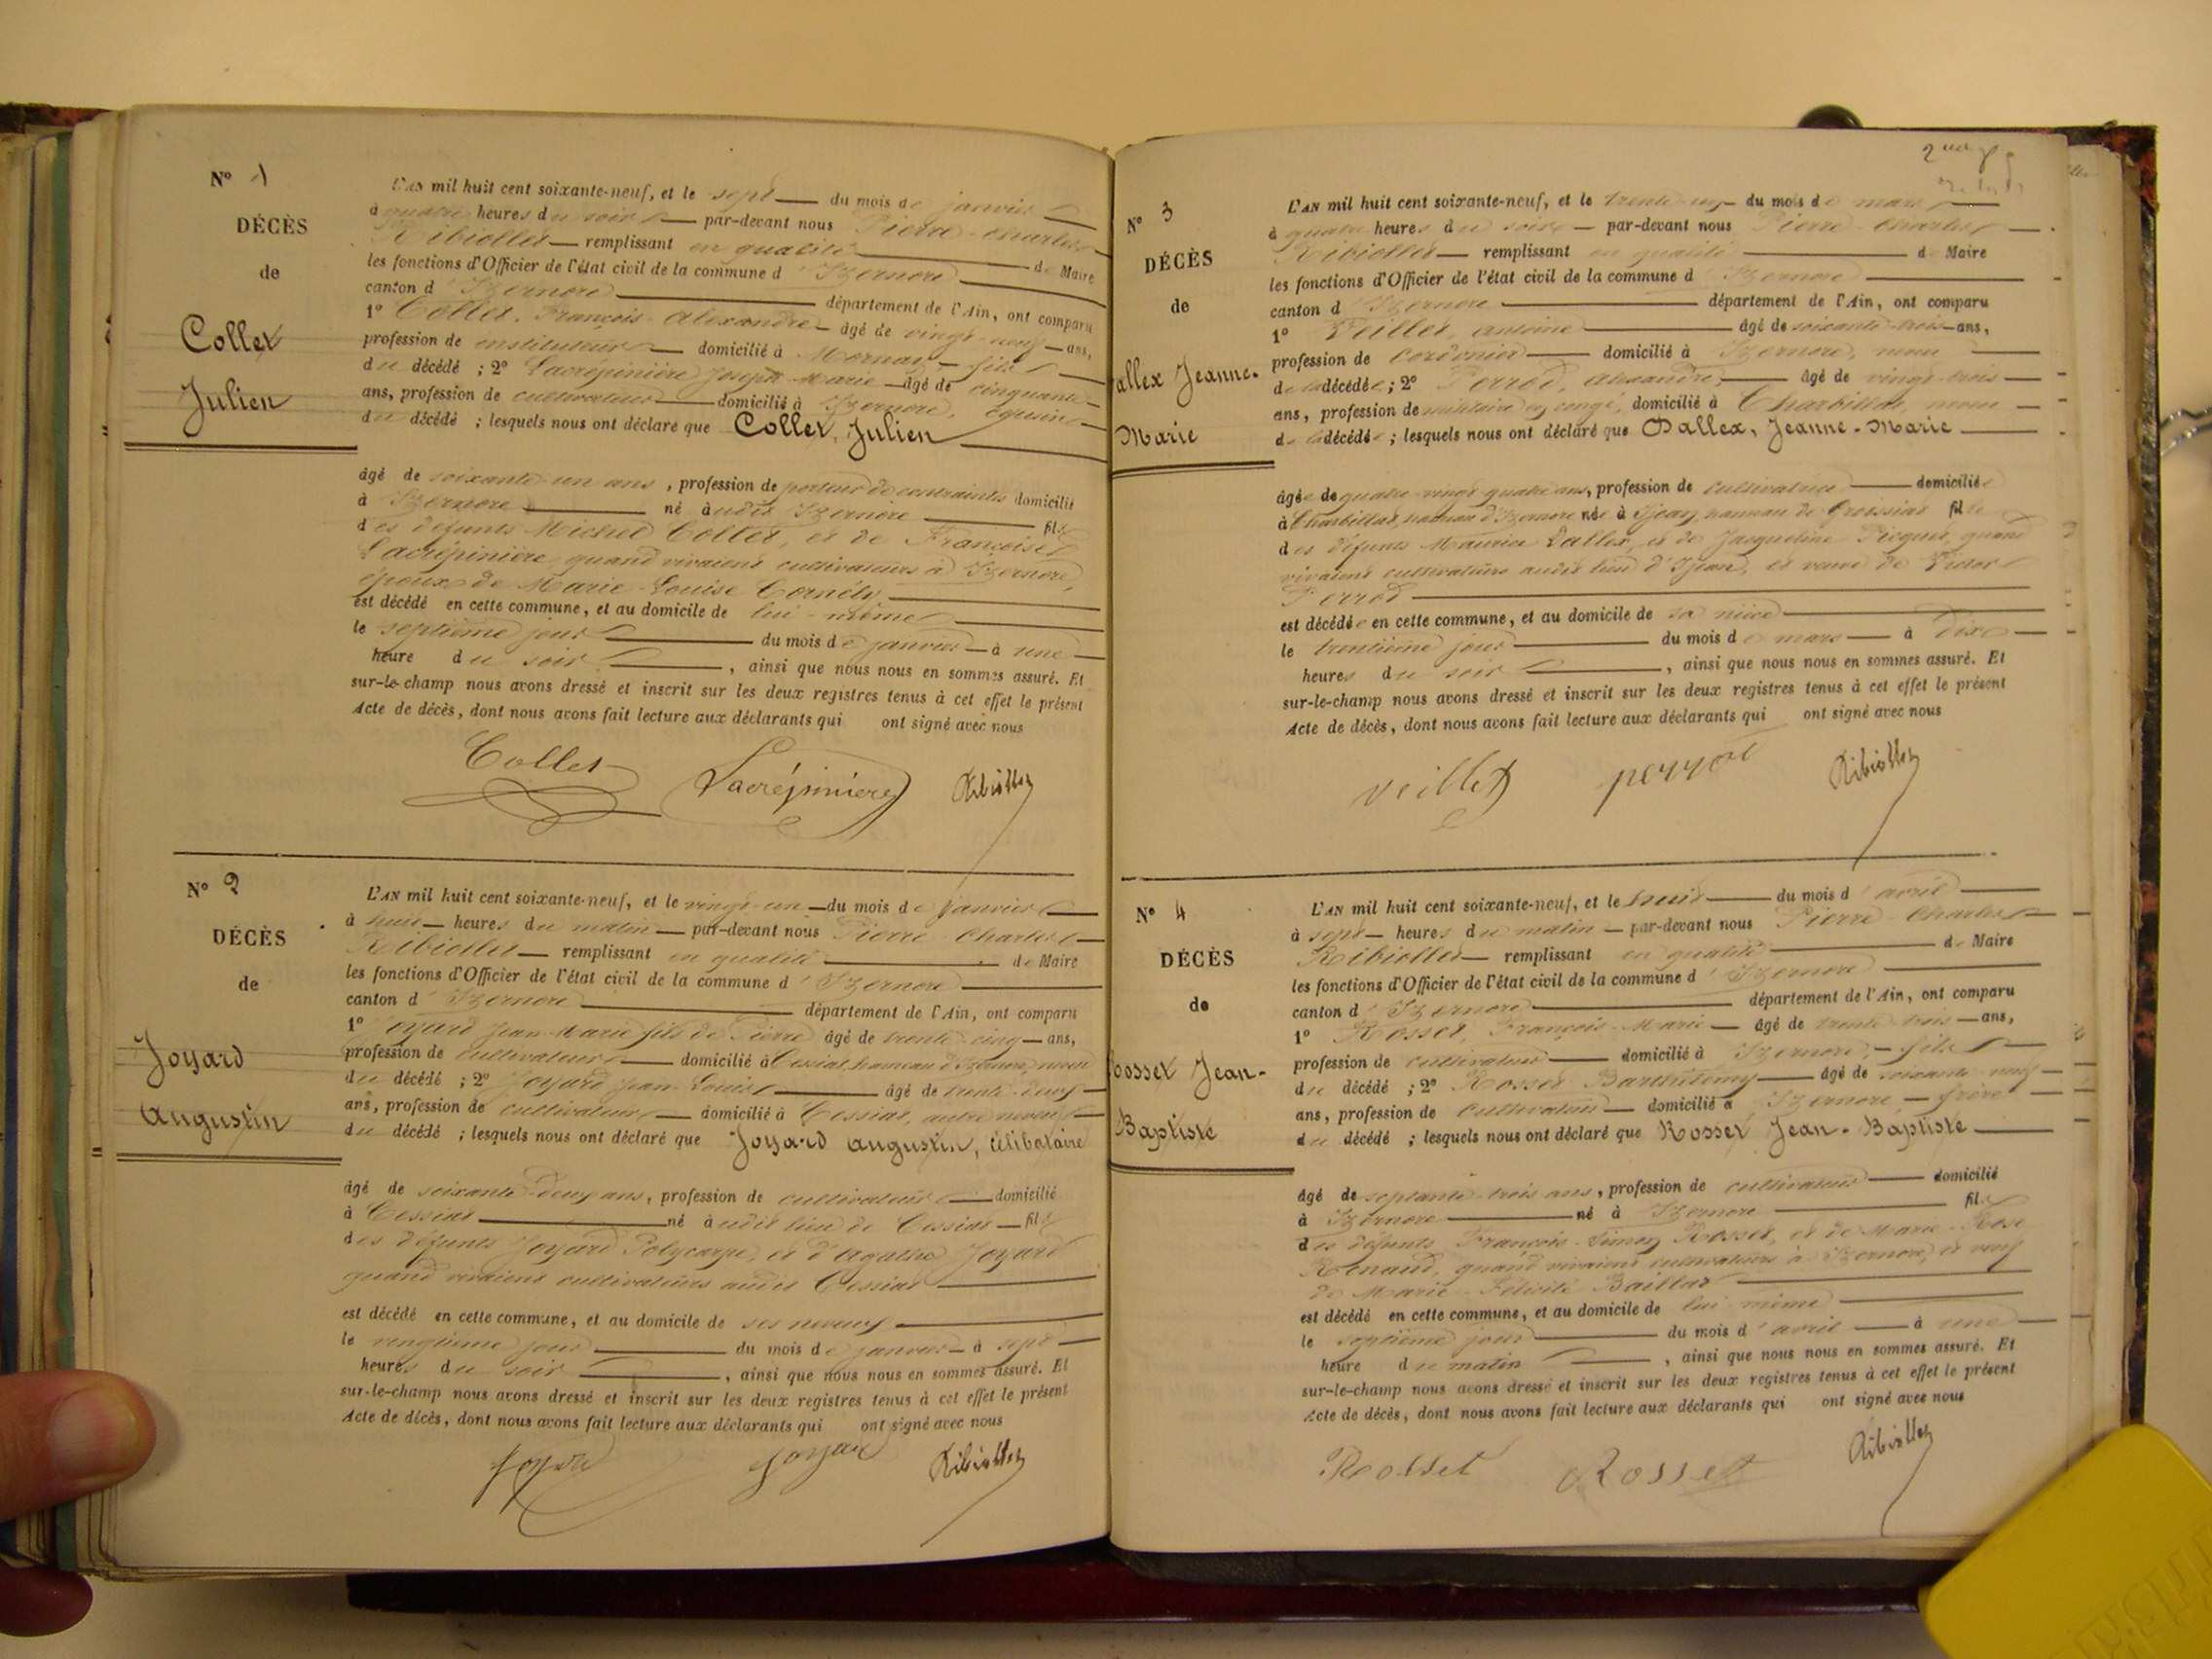 N° 1
DÉCÈS
de
Collet
Julien
L'AN mil huit cent soixante-neuf, et le sept du mois de janvier
à quatre heures du soir par-devant nous Pierre-Charles
Ribiollet remplissant en qualité de Maire
les fonctions d'Officier de l'état civil de la commune d'Izernore
canton d'Izernore département de l'Ain, ont comparu
1° Collet, François-Alexandre âgé de vingt-neuf ans,
profession de instituteur domicilié à Mornay, fils
du décédé ; 2° Lacrépinière Joseph-Marie âgé de cinquante
ans, profession de cultivateur domicilié à Izernore, cousin
du décédé ; lesquels nous ont déclaré que Collet, Julien
âgé de soixante-un ans, profession de porteur de contraintes domicilié
à Izernore né audit Izernore fils
des défunts Michel Collet, et de Françoise
Lacrépinière, quand vivaient cultivateurs à Izernore,
époux de Marie-Louise Cornély
est décédé en cette commune, et au domicile de lui-même
le septième jour du mois de janvier à une
heure du soir, ainsi que nous nous en sommes assuré. Et
sur-le-champ nous avons dressé et inscrit sur les deux registres tenus à cet effet le présent
Acte de décès, dont nous avons fait lecture aux déclarants qui ont signé avec nous
Collet Lacrépinière Ribiollet
N° 2
DÉCÈS
de
Joyard
Augustin
L'AN mil huit cent soixante-neuf, et le vingt-un du mois de janvier
à huit heures du matin par-devant nous Pierre-Charles
Ribiollet remplissant en qualité de Maire
les fonctions d'Officier de l'état civil de la commune d'Izernore
canton d'Izernore département de l'Ain, ont comparu
1° Joyard Jean-Marie fils de Pierre âgé de trente-cinq ans,
profession de cultivateur domicilié à Cessiat, hameau d'Izernore, neveu
du décédé ; 2° Joyard Jean-Louis âgé de trente-deux
ans, profession de cultivateur domicilié à Cessiat, autre neveu
du décédé ; lesquels nous ont déclaré que Joyard Augustin, célibataire
âgé de soixante-deux ans, profession de cultivateur domicilié
à Cessiat né audit lieu de Cessiat fils
des défunts Joyard Polycarpe, et d'Agathe Joyard
quand vivaient cultivateurs audit Cessiat
est décédé en cette commune, et au domicile de ses neveux
le vingtième jour du mois de janvier à sept
heures du soir, ainsi que nous nous en sommes assuré. Et
sur-le-champ nous avons dressé et inscrit sur les deux registres tenus à cet effet le présent
Acte de décès, dont nous avons fait lecture aux déclarants qui ont signé avec nous
Joyard Joyard Ribiollet
N° 3
DÉCÈS
de
allex Jeanne-
Marie
L'AN mil huit cent soixante-neuf, et le trente-un du mois de mars
à quatre heures du soir par-devant nous Pierre-Charles
Ribiollet remplissant en qualité de Maire
les fonctions d'Officier de l'état civil de la commune d'Izernore
canton d'Izernore département de l'Ain, ont comparu
1° Veillet, Antoine âgé de soixante-trois ans,
profession de cordonnier domicilié à Izernore, neveu
de la décédée ; 2° Perrod, Alexandre, âgé de vingt-trois
ans, profession de militaire en congé, domicilié à Charbillat, neveu
de la décédée ; lesquels nous ont déclaré que Dallex, Jeanne-Marie
âgée de quatre-vingt-quatre ans, profession de cultivatrice domiciliée
à Charbillat, hameau d'Izernore née à Ijean, hameau de Groissiat fille
des défunts Maurice Dallex, et de Jacqueline Picquet, quand
vivaient cultivateurs audit lieu d'Ijean, et veuve de Victor
Perrod
est décédée en cette commune, et au domicile de sa nièce
le trentième jour du mois de mars à dix
heures du soir, ainsi que nous nous en sommes assuré. Et
sur-le-champ nous avons dressé et inscrit sur les deux registres tenus à cet effet le présent
Acte de décès, dont nous avons fait lecture aux déclarants qui ont signé avec nous
veillet perrod Ribiollet
N° 4
DÉCÈS
de
Rosset Jean-
Baptiste
L'AN mil huit cent soixante-neuf, et le huit du mois d'avril
à sept heures du matin par-devant nous Pierre-Charles
Ribiollet remplissant en qualité de Maire
les fonctions d'Officier de l'état civil de la commune d'Izernore
canton d'Izernore département de l'Ain, ont comparu
1° Rosset, François-Marie âgé de trente-trois ans,
profession de cultivateur domicilié à Izernore, fils
du décédé ; 2° Rosset Barthélemy âgé de soixante-neuf
ans, profession de cultivateur domicilié à Izernore, frère
du décédé ; lesquels nous ont déclaré que Rosset Jean-Baptiste
âgé de septante-trois ans, profession de cultivateur domicilié
à Izernore né à Izernore fils
des défunts François-Simon Rosset, et de Marie-Rose
Renaud, quand vivaient cultivateurs à Izernore, et veuf
de Marie-Félicité Baillat
est décédé en cette commune, et au domicile de lui-même
le septième jour du mois d'avril à une
heure du matin, ainsi que nous nous en sommes assuré. Et
sur-le-champ nous avons dressé et inscrit sur les deux registres tenus à cet effet le présent
Acte de décès, dont nous avons fait lecture aux déclarants qui ont signé avec nous
Rosset Rosset Ribiollet